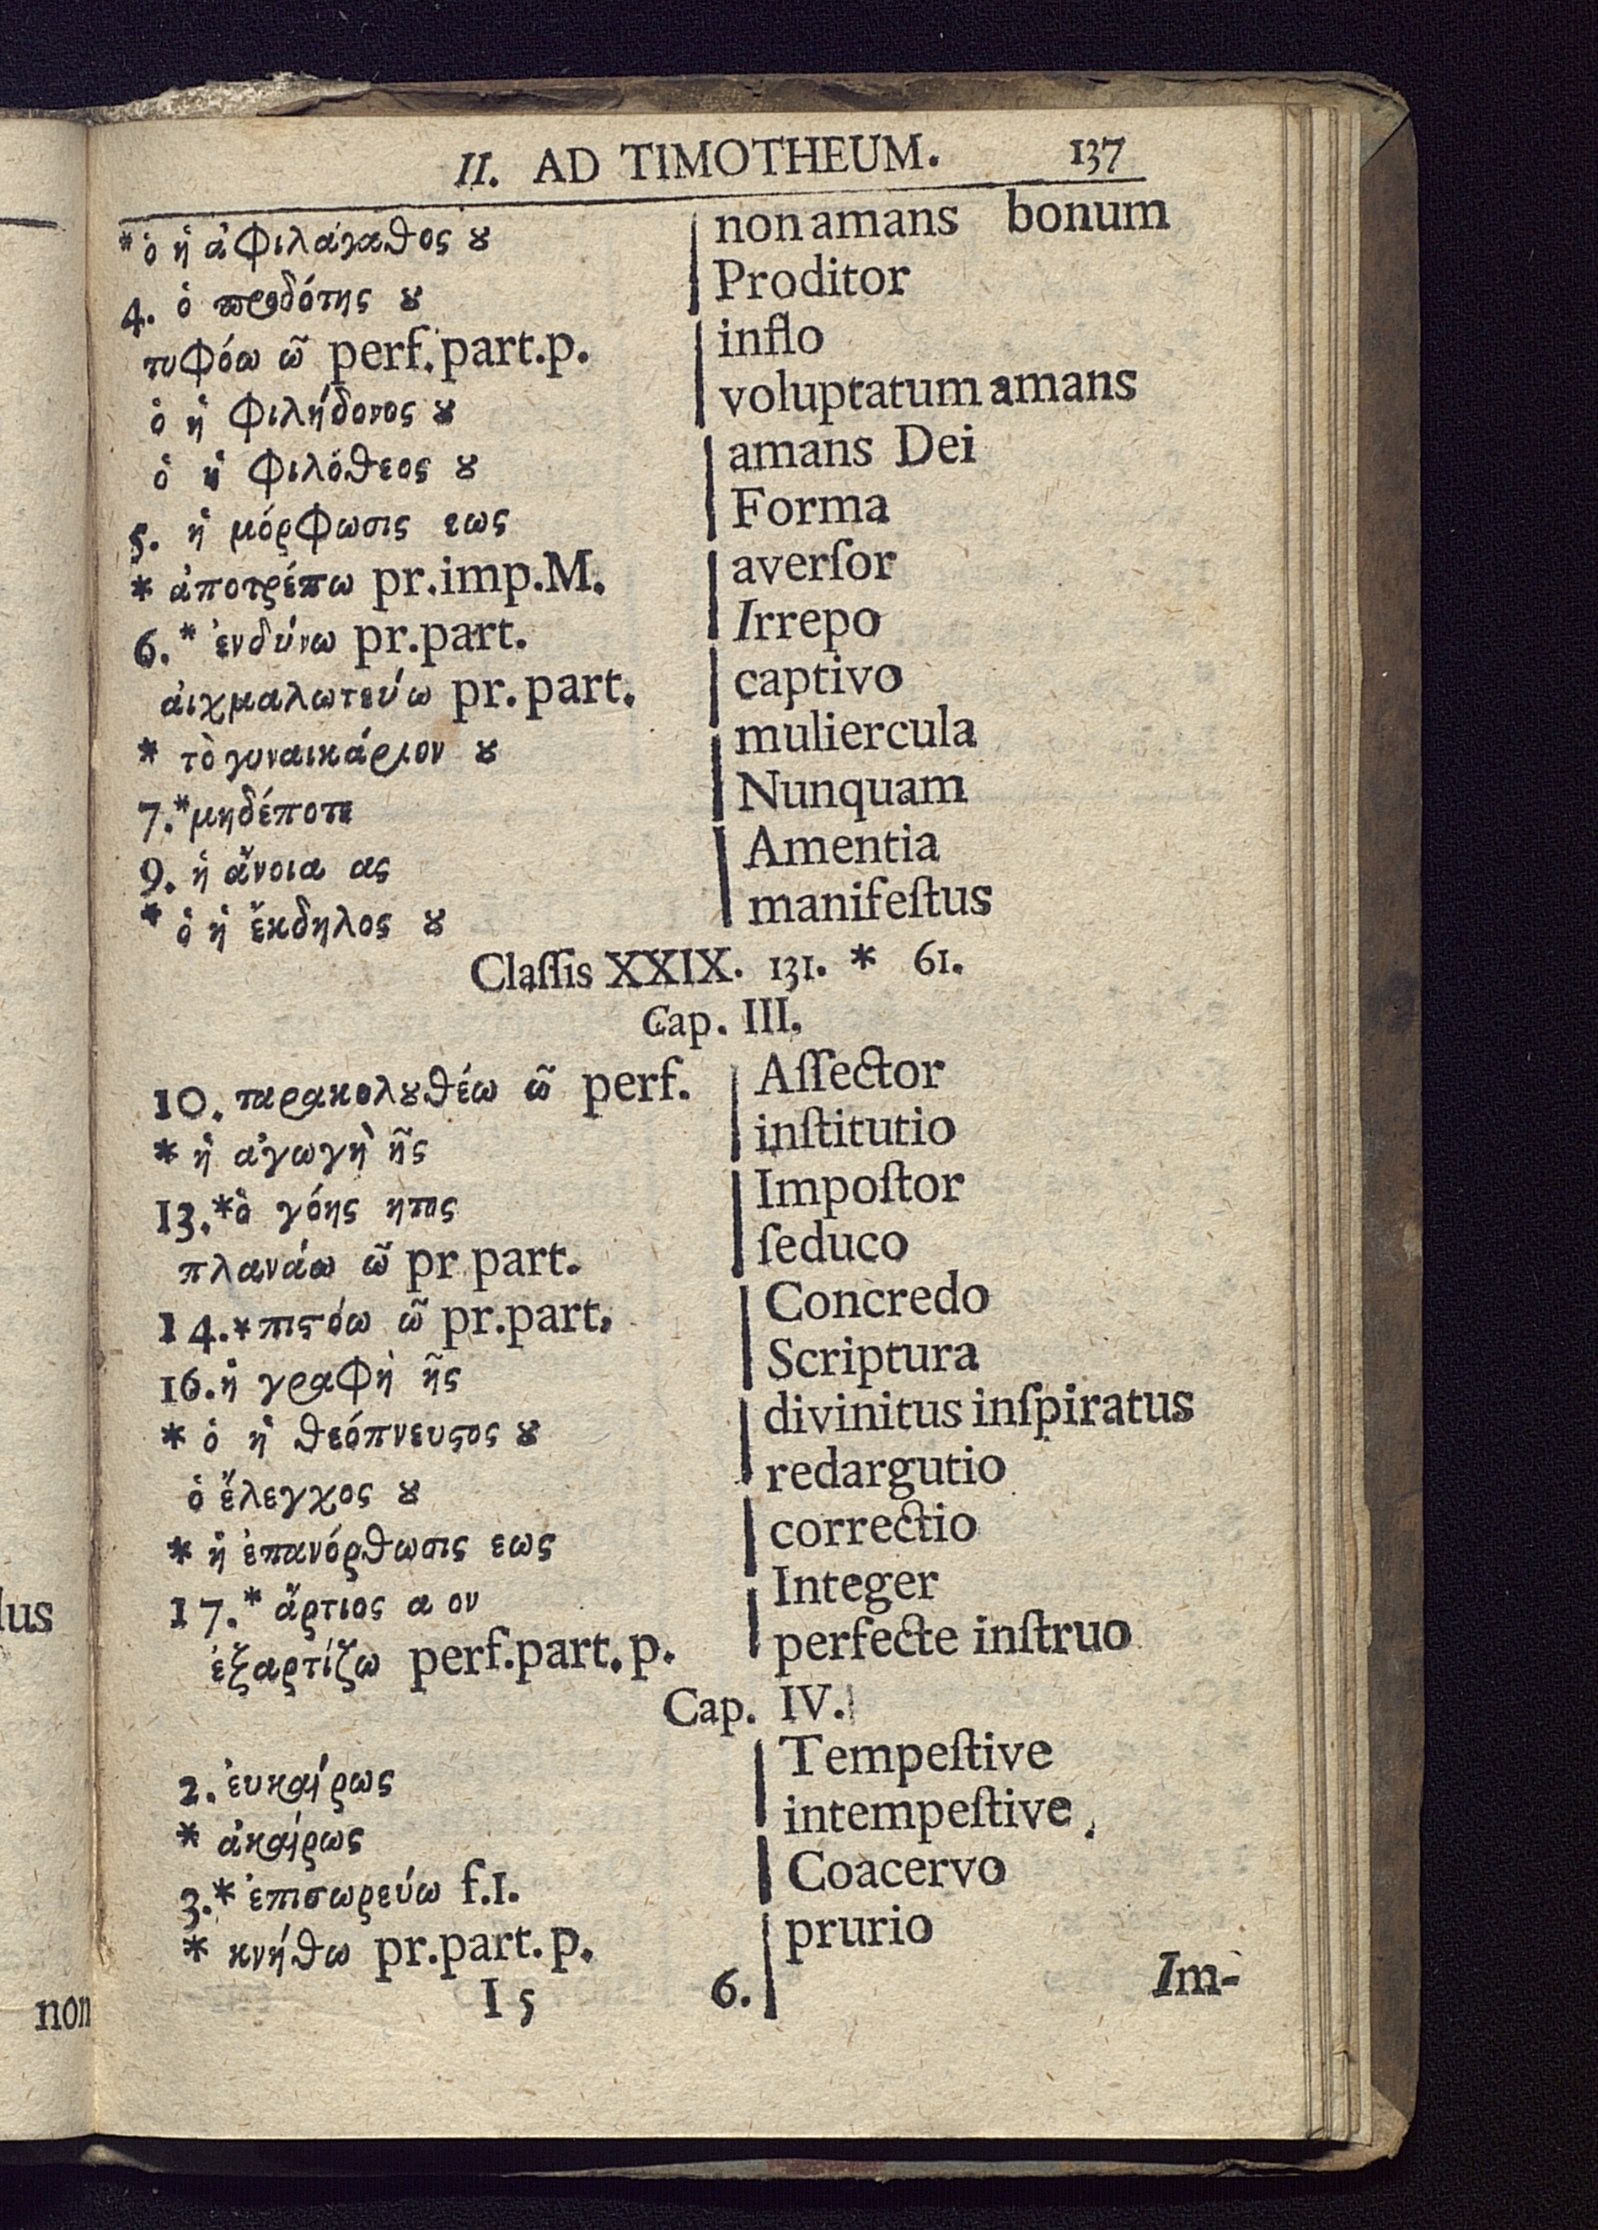 II. AD TIMOTHEUM. 137
* ὁ ἡ ἀφιλάγαθος ȣ | non amans bonum
4. ὁ προδότης ȣ | Proditor
τυφόω ῶ perf. part. p. | inflo
ὁ ἡ φιλήδονος ȣ | voluptatum amans
ὁ ἡ φιλόθεος ȣ | amans Dei
5. ἡ μόρφωσις εως | Forma
* ἀποτρέπω pr. imp. M. | averſor
6. * ἐνδύνω pr. part. | Irrepo
ἀιχμαλωτεύω pr. part. | captivo
* τὸ γυναικάριον ȣ | muliercula
7. * μηδέποτε | Nunquam
9. ἡ ἄνοια ας | Amentia
* ὁ ἡ ἔκδηλος ȣ | manifeſtus
Claſſis XXIX. 131. * 61.
Cap. III.
10. παρακολȣθέω ῶ perf. | Aſſector
* ἡ ἀγωγὴ ῆς | inſtitutio
13. * ὁ γόης ητος | Impoſtor
πλανάω ῶ pr part. | ſeduco
14. * πιϛόω ῶ pr. part. | Concredo
16. ἡ γραφὴ ῆς | Scriptura
* ὁ ἡ θεόπνευϛος ȣ | divinitus inſpiratus
ὁ ἔλεγχος ȣ | redargutio
* ἡ ἐπανόρθωσις εως | correctio
17. * ἄρτιος α ον | Integer
ἐξαρτίζω perf. part. p. | perfecte inſtruo
Cap. IV.
2. ἐυκαίρως | Tempeſtive
* ἀκαίρως | intempeſtive.
3. * ἐπισωρεύω f. 1. | Coacervo
* κνήθω pr. part. p. | prurio
I 5 6. | Im-
lus
non